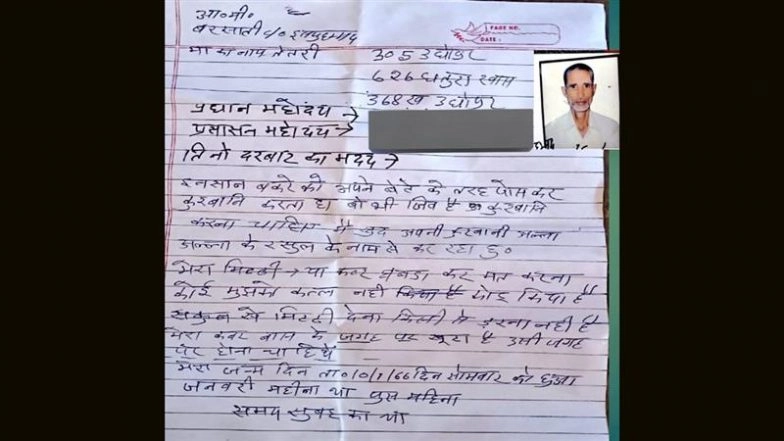 आ० मी०
PAGE NO.
DATE :
बरसाती
मा का नाम तेतरी
305 उधोपुर
626 धतुरा खास
368 ख उधोपुर
प्रधान महोदय →
प्रसासन महोदय →
तिनो दरबार का मदद →
इनसान बकरे को अपने बेटे के तरह पोस कर
कुरबानि करता हा वो भी जिव है कुरबानि
करना चाहिए मै खुद अपनी कुरबानी अल्ला
अल्ला के रसुल के नाम से कर रहा हु०
मेरा मिटटी → या कबर घबडा कर मत करना
कोई मुझको कत्ल नही किया है
सकुन से मिटटी देना किसी से डरना नही है
मेरा कबर बास के जगह पर खुटा है उसी जगह
पर होना चाहिये
मेरा जन्म दिन ता० दिन सोमवार को हुआ
जनवरी महीना था पुस महिना
समय सुबह का था